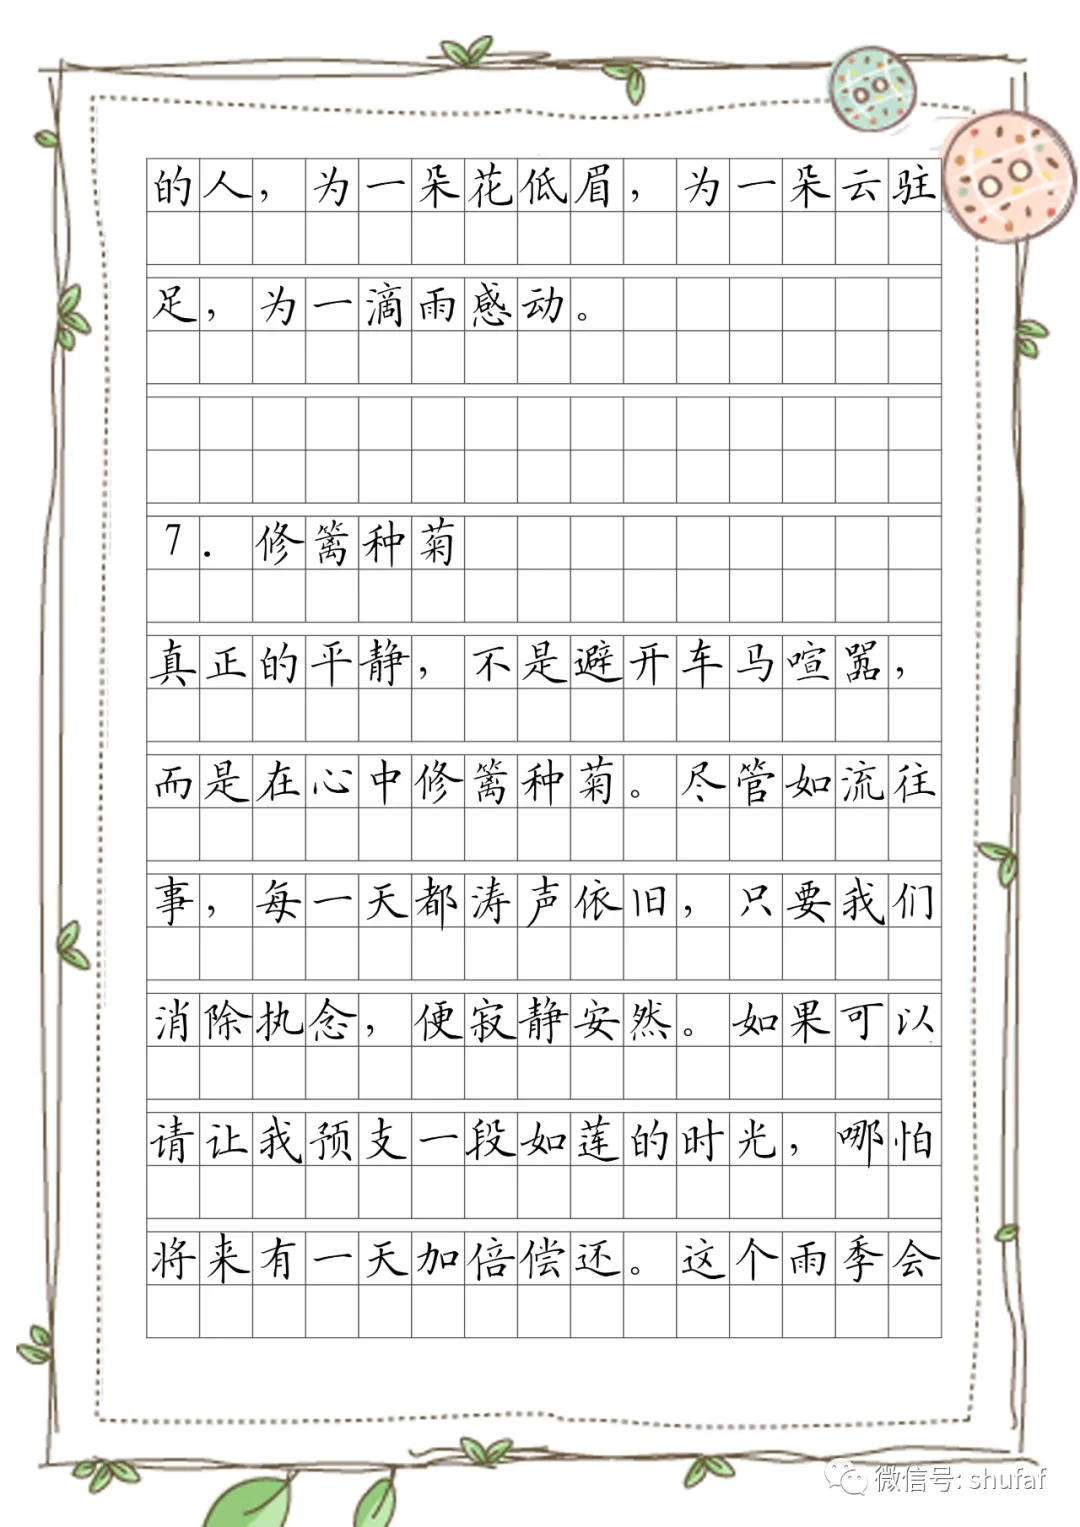 的人，为一朵花低眉，为一朵云驻
足，为一滴雨感动。
7．修篱种菊
真正的平静，不是避开车马喧嚣，
而是在心中修篱种菊。尽管如流往
事，每一天都涛声依旧，只要我们
消除执念，便寂静安然。如果可以
请让我预支一段如莲的时光，哪怕
将来有一天加倍偿还。这个雨季会
微信号: shufaf